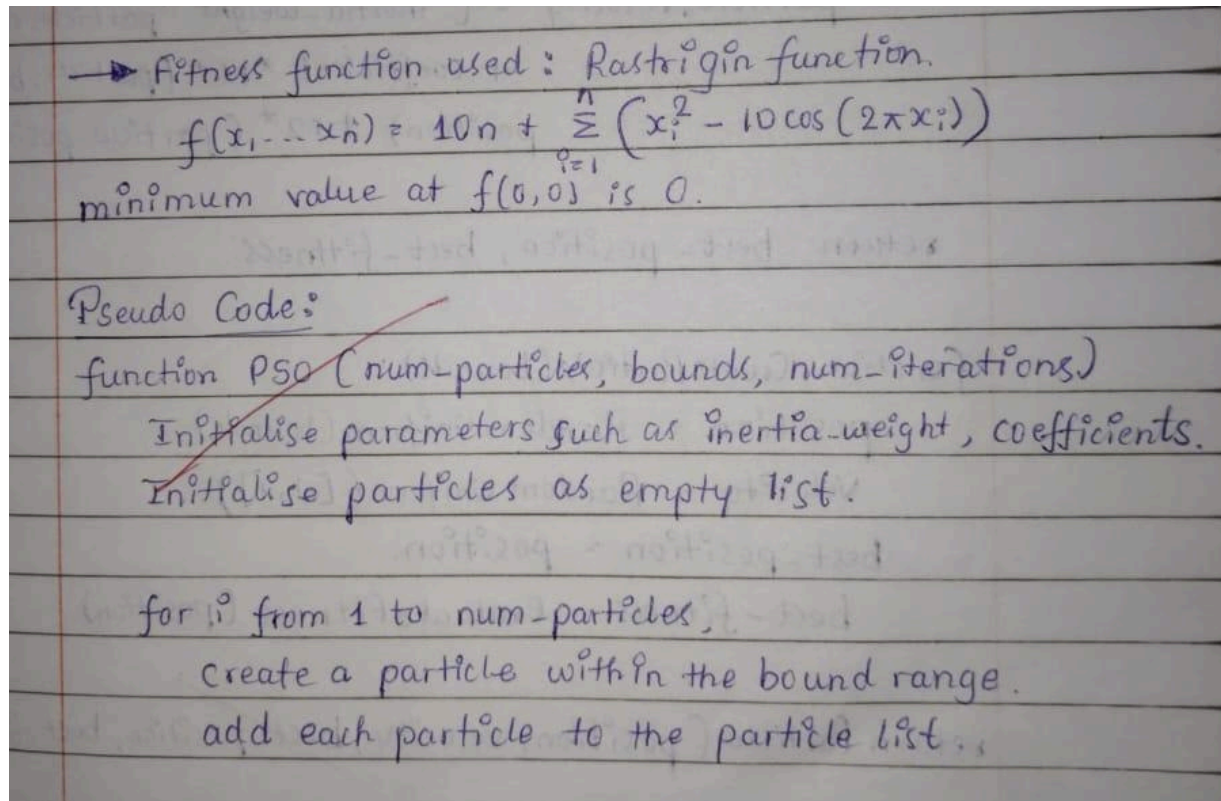 → Fitness function used : Rastrigin function.
f(x₁ ... xn) = 10n + Σⁿᵢ₌₁ (xᵢ² - 10 cos (2πxᵢ))
minimum value at f(0,0) is 0.
Pseudo Code:
function PSO (num-particles, bounds, num-iterations)
Initialise parameters such as inertia-weight, coefficients.
Initialise particles as empty list.
for i from 1 to num-particles,
create a particle within the bound range.
add each particle to the particle list.